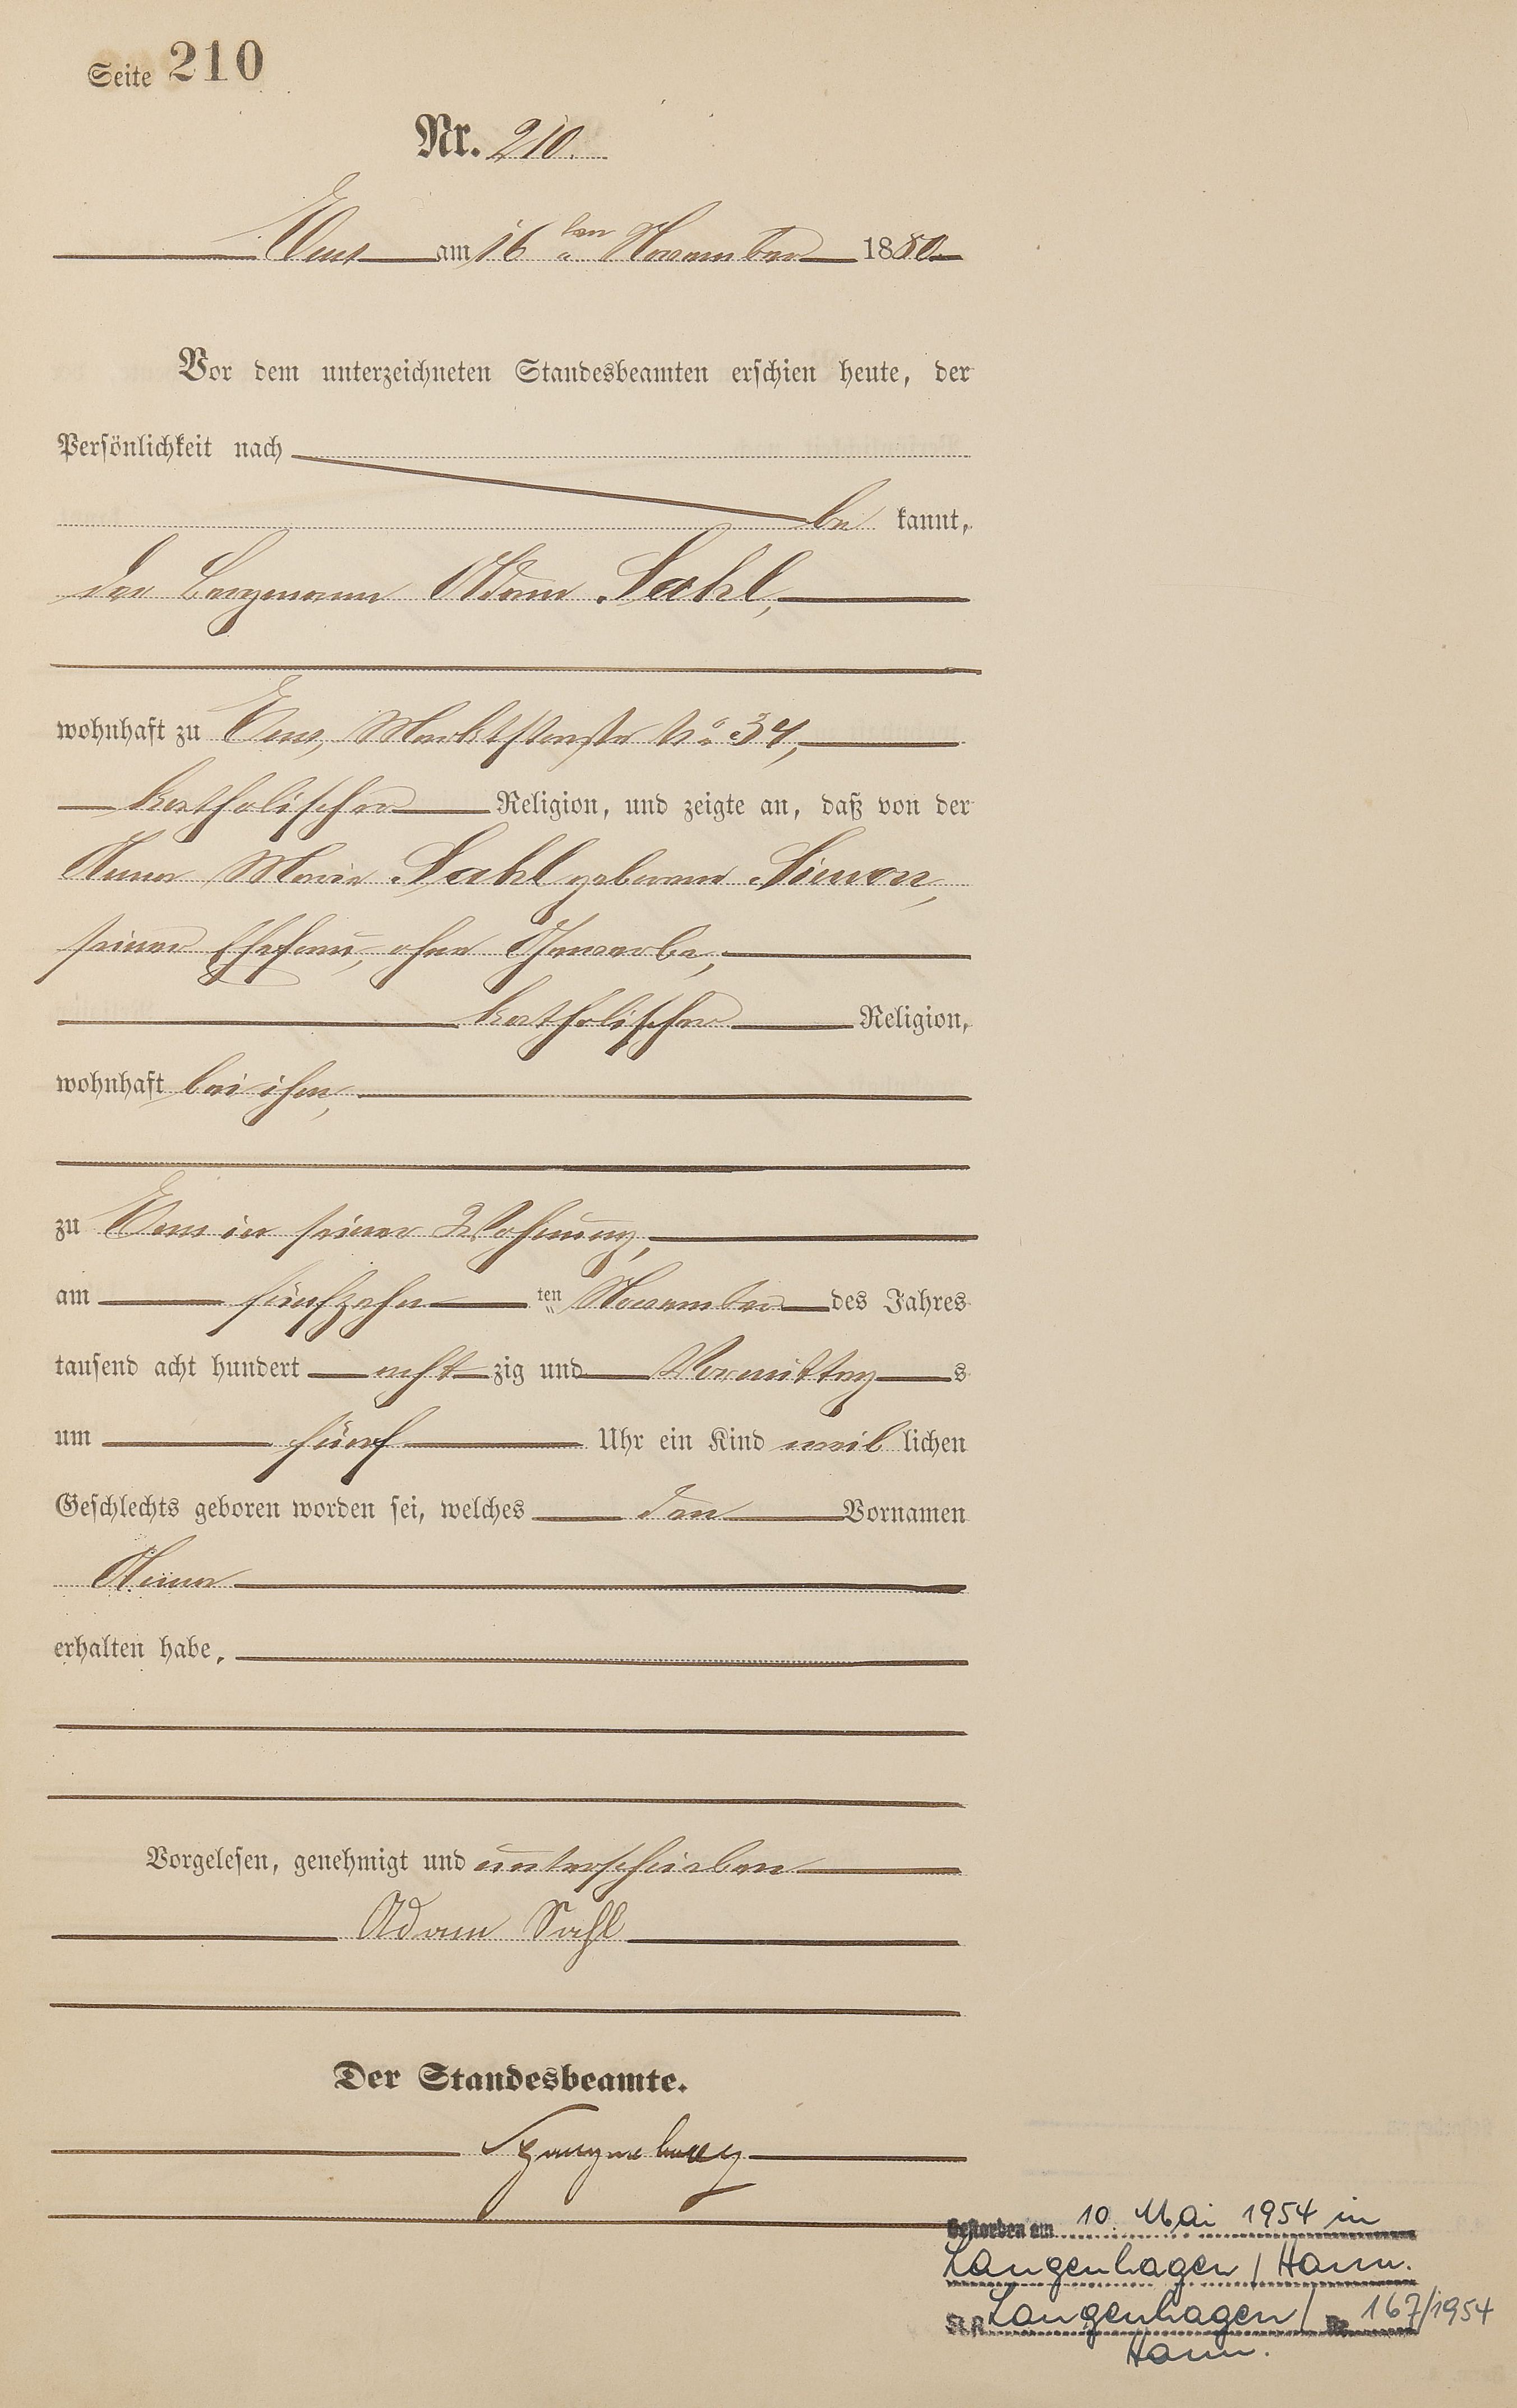 Seite 210
Nr. 210.
Ems am 16ten November 1880.
Vor dem unterzeichneten Standesbeamten erschien heute, der
Persönlichkeit nach
be kannt,
der Bergmann Adam Sahl,
wohnhaft zu Ems, Marktstraße No 34,
katholischer Religion, und zeigte an, daß von der
Anna Maria Sahl geborene Simon,
seiner Ehefrau, ohne Gewerbe,
katholischer Religion,
wohnhaft bei ihm,
zu Ems in seiner Wohnung,
am fünfzehn ten November des Jahres
tausend acht hundert acht zig und Vormittag s
um fünf Uhr ein Kind weib lichen
Geschlechts geboren worden sei, welches den Vornamen
Anna
erhalten habe.
Vorgelesen, genehmigt und unterschrieben
Adam Sahl
Der Standesbeamte.
Spangenberg
Gestorben am 10. Mai 1954 in
Langenhagen / Hann.
St.A. Langenhagen / Nr. 167/1954
Hann.